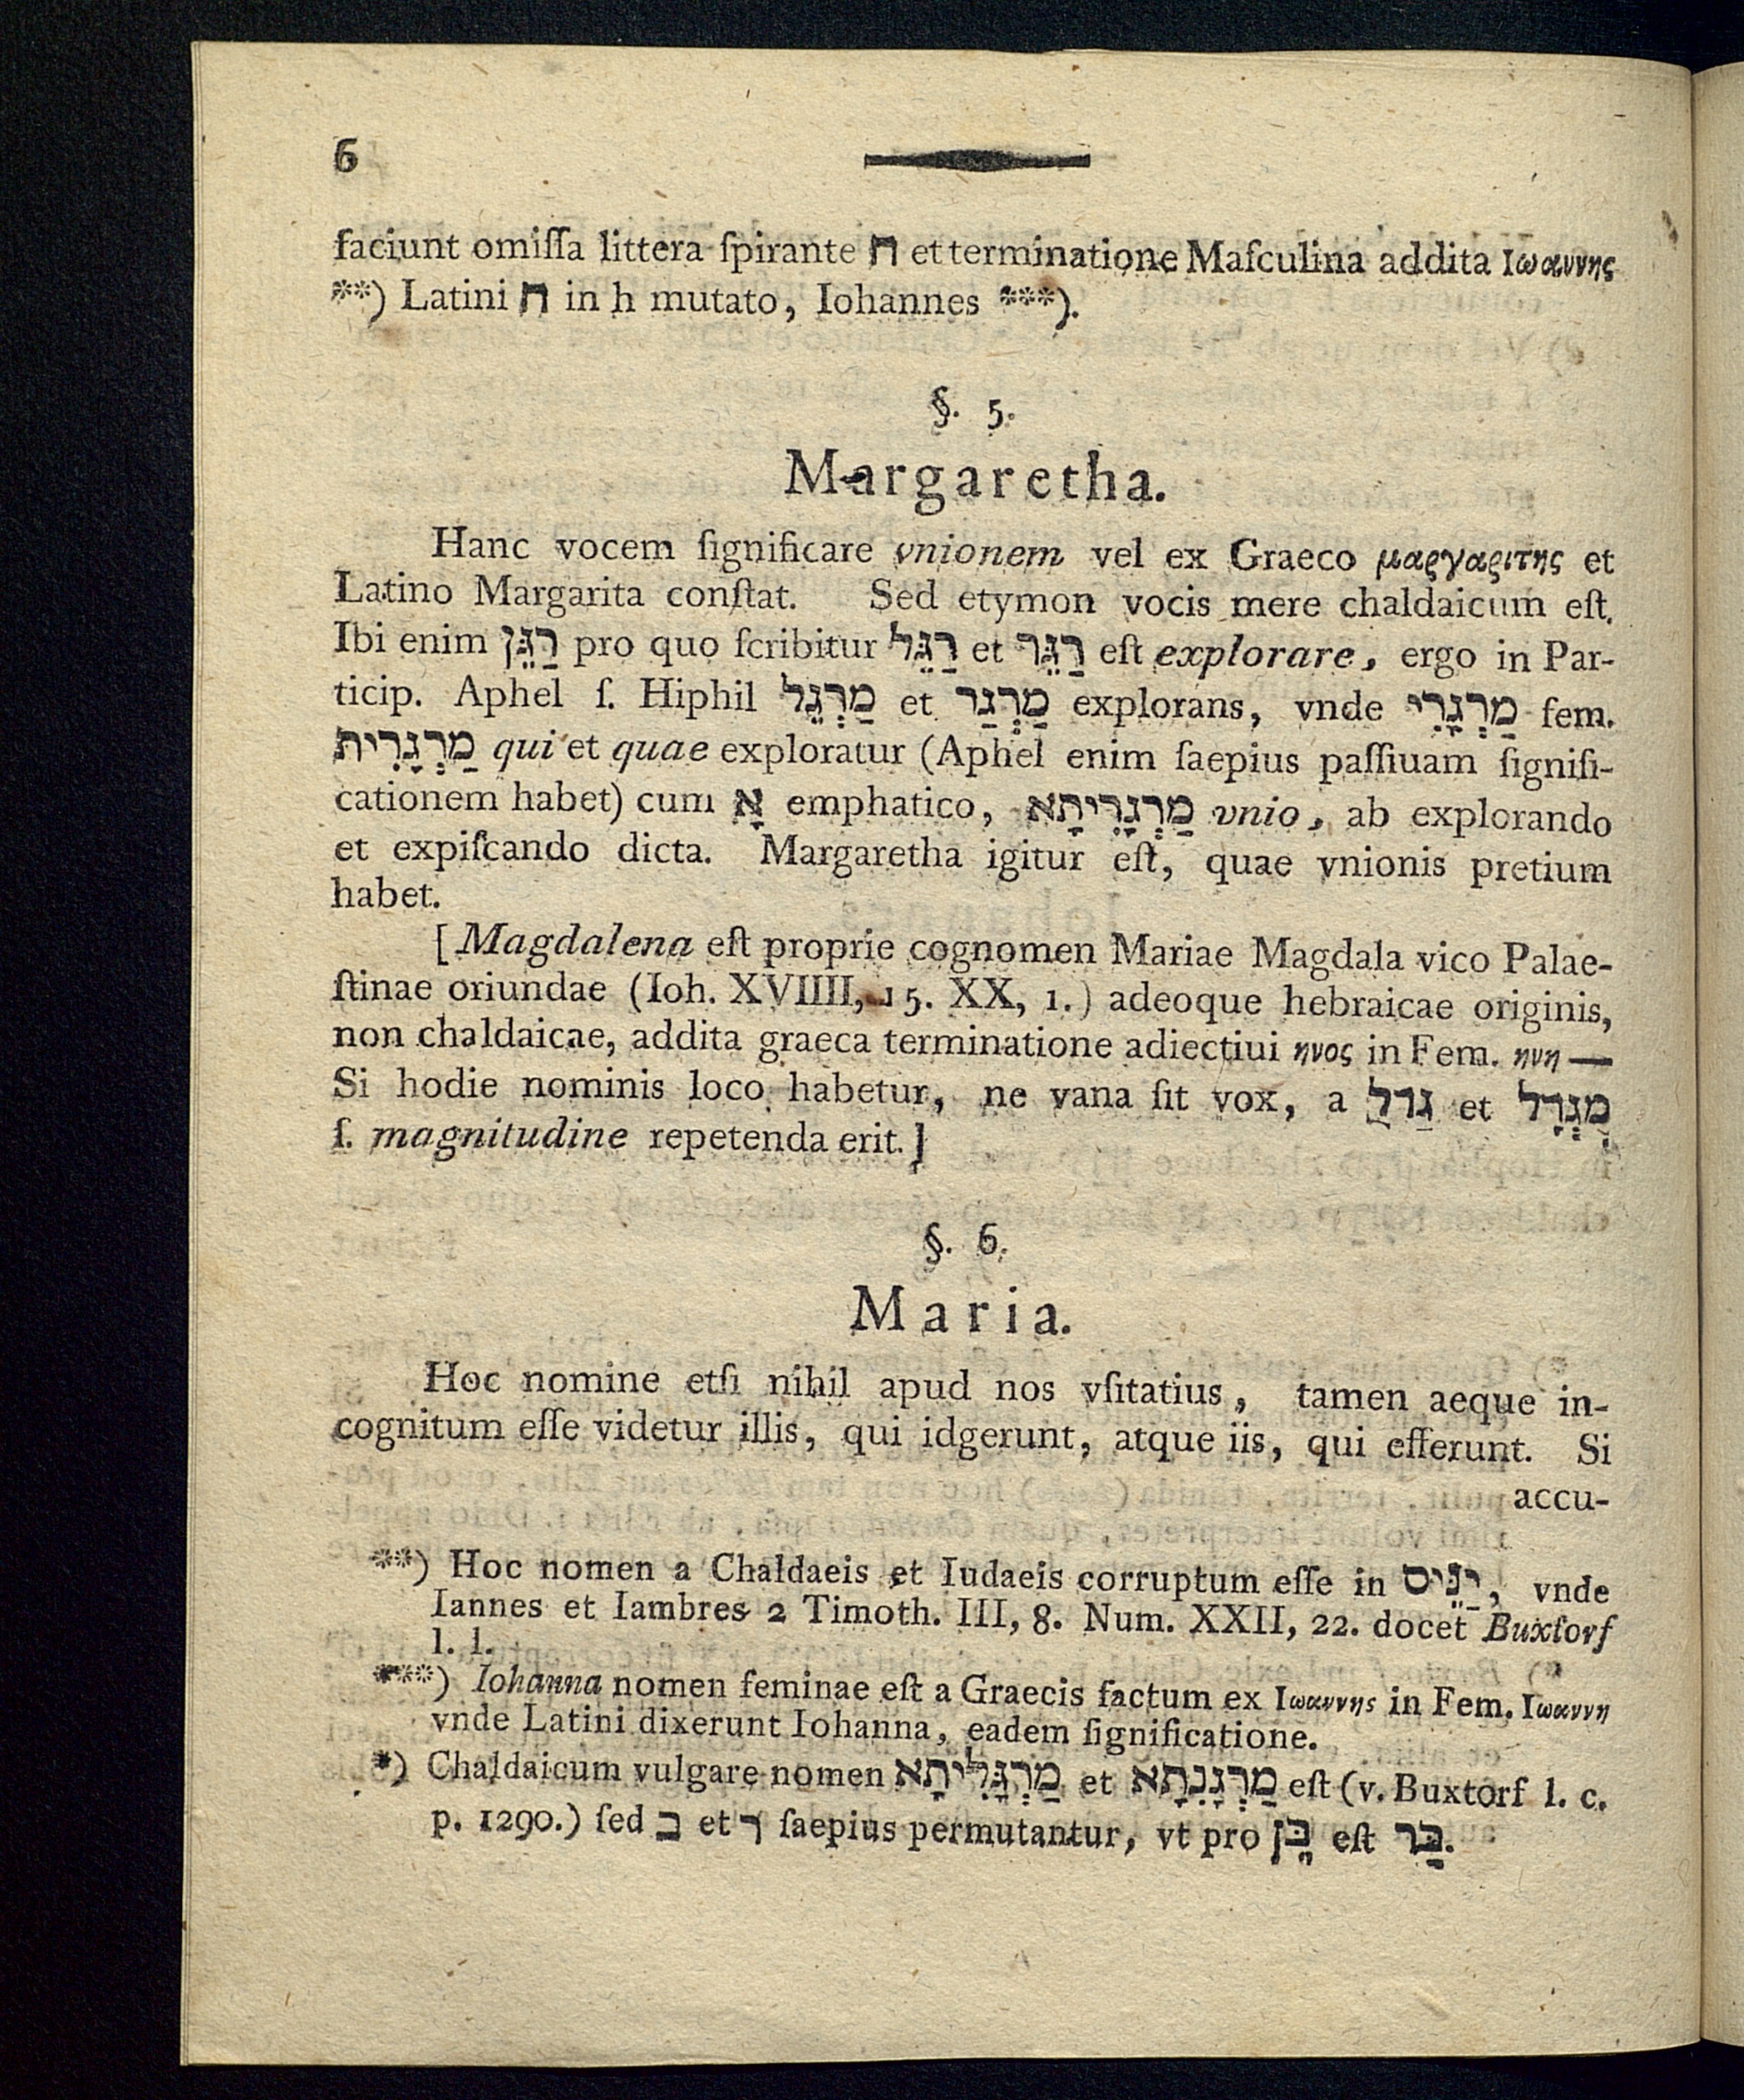 6
faciunt omiſſa littera ſpirante ח et terminatione Maſculina addita Ιωαννης
**) Latini ח in h mutato, Iohannes ***).
§. 5.
Margaretha.
Hanc vocem ſignificare vnionem vel ex Graeco μαργαριτης et
Latino Margarita conſtat. Sed etymon vocis mere chaldaicum eſt.
Ibi enim רַגֵּן pro quo ſcribitur רַגֵּל et רַגֵּר eſt explorare, ergo in Par-
ticip. Aphel ſ. Hiphil מַרְגֵּל et מַרְגַּר explorans, vnde מַרְגָּרִי fem.
מַרְגָּרִית qui et quae exploratur (Aphel enim ſaepius paſſiuam ſignifi-
cationem habet) cum אָ emphatico, מַרְגָּרִיתָא vnio, ab explorando
et expiſcando dicta. Margaretha igitur eſt, quae vnionis pretium
habet.
[Magdalena eſt proprie cognomen Mariae Magdala vico Palae-
ſtinae oriundae (Ioh. XVIIII, 15. XX, 1.) adeoque hebraicae originis,
non chaldaicae, addita graeca terminatione adiectiui ηνος in Fem. ηνη —
Si hodie nominis loco habetur, ne vana ſit vox, a גַּדל et מִגְדָּל
ſ. magnitudine repetenda erit.]
§. 6.
Maria.
Hoc nomine etſi nihil apud nos vſitatius, tamen aeque in-
cognitum eſſe videtur illis, qui idgerunt, atque iis, qui efferunt. Si
accu-
**) Hoc nomen a Chaldaeis et Iudaeis corruptum eſſe in יַנֵּיס, vnde
Iannes et Iambres 2 Timoth. III, 8. Num. XXII, 22. docet Buxtorf
l. l.
***) Iohanna nomen feminae eſt a Graecis factum ex Ιωαννης in Fem. Ιωαννη
vnde Latini dixerunt Iohanna, eadem ſignificatione.
*) Chaldaicum vulgare nomen מַרְגָּלִיתָא et מַרְגָּנִתָא eſt (v. Buxtorf l. c.
p. 1290.) ſed נ et ר ſaepius permutantur, vt pro בֵּן eſt בַּר.